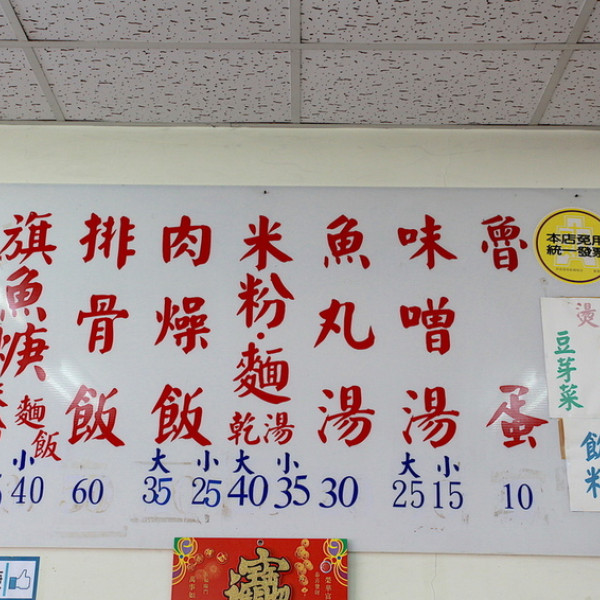 旗魚焿
麵飯
小
40
排骨飯
60
肉燥飯
大 小
35 25
米粉·麵
乾湯
大 小
40 35
魚丸湯
30
味噌湯
大 小
25 15
魯蛋
10
本店免用
統一發票
燙
豆芽菜
飲料